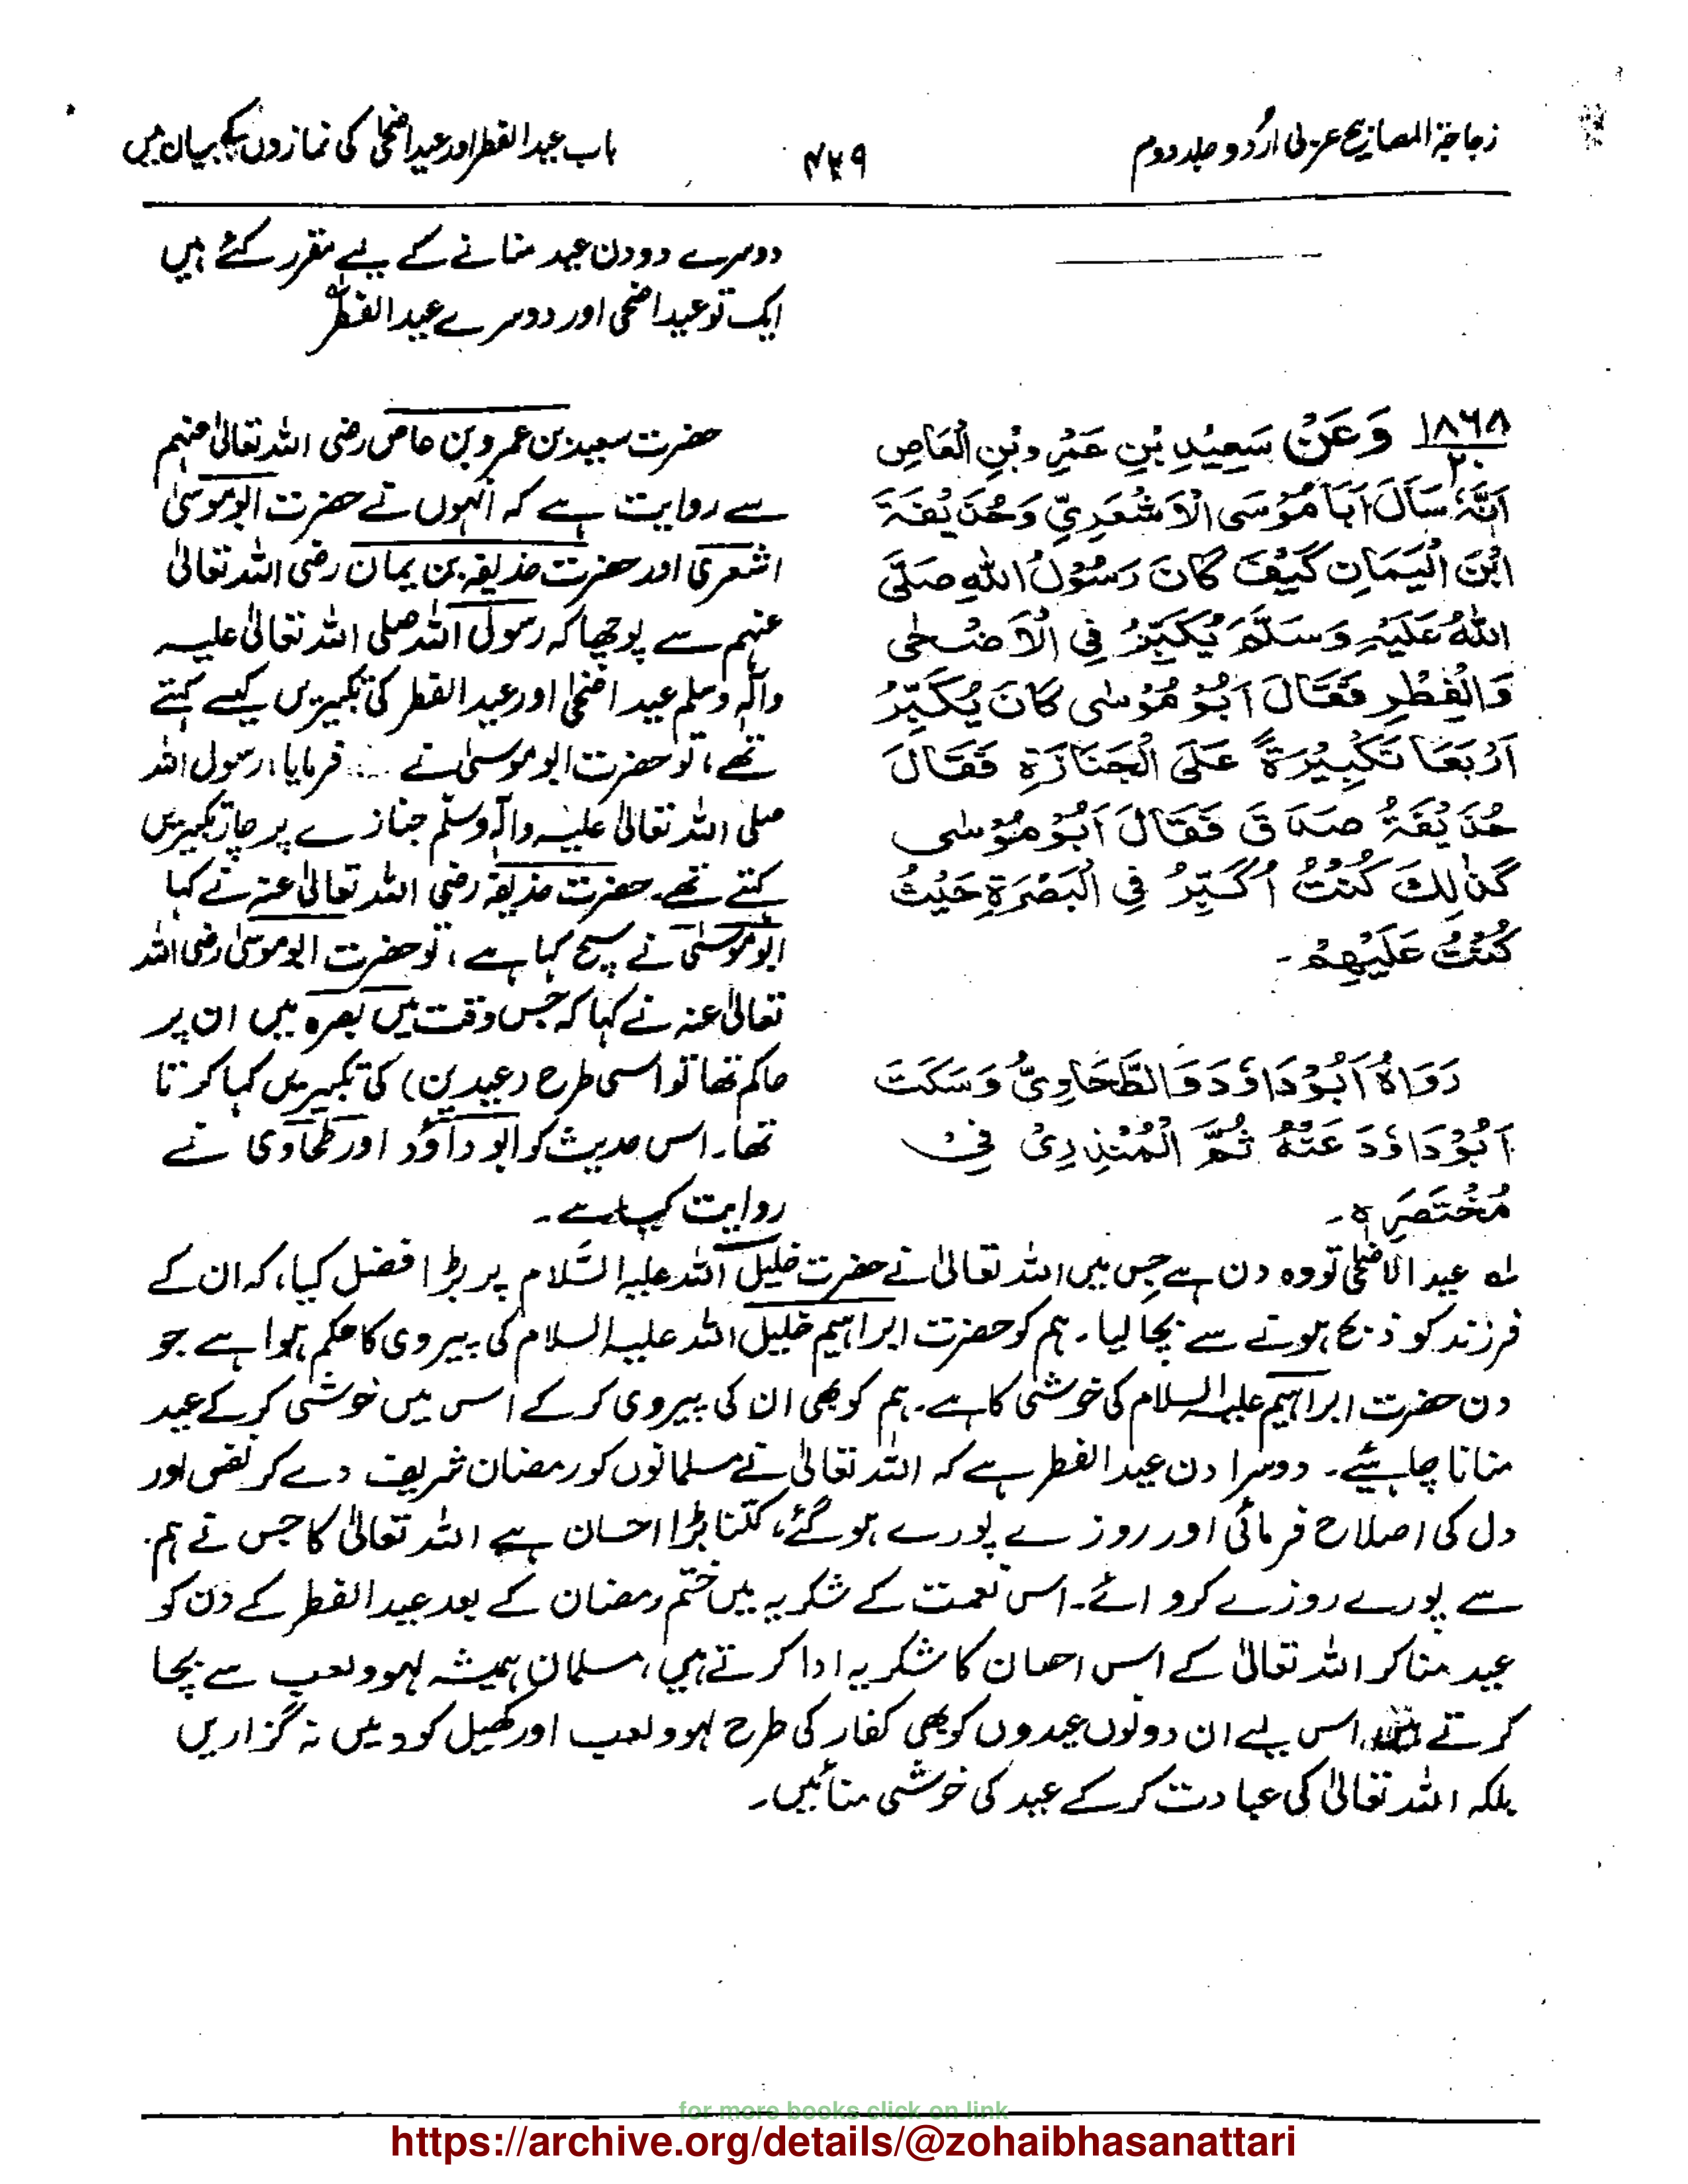 زجاجۃ المصابیح عربی اُردو جلد دوم
۴۲۹
باب عید الفطر اور عید اضحیٰ کی نمازوں کے بیان میں
دوسرے دو دن عید منانے کے لیے مقرر کئے ہیں
ایک تو عید اضحی اور دوسرے عید الفطرلہ
۱۸۶۸ وَعَنْ سَعِيْدِ بْنِ عَمْرِ وبْنِ الْعَاصِ
۲۰
اَنَّهٗ سَأَلَ اَبَا مُوْسَى الْاَشْعَرِيِّ وَحُذَيْفَةَ
ابْنَ الْيَمَانِ كَيْفَ كَانَ رَسُوْلُ اللهِ صَلَّى
اللهُ عَلَيْهِ وَسَلَّمَ يُكَبِّرُ فِي الْاَضْحٰى
وَالْفِطْرِ فَقَالَ اَبُوْ مُوْسٰى كَانَ يُكَبِّرُ
اَرْبَعًا تَكْبِيْرَةً عَلَى الْجَنَازَةِ فَقَالَ
حُذَيْفَةُ صَدَقَ فَقَالَ اَبُوْ مُوْسٰى
كَذٰلِكَ كُنْتُ اُكَبِّرُ فِي الْبَصْرَةِ حَيْثُ
كُنْتُ عَلَيْهِمْ۔
رَوَاهُ اَبُوْ دَاوٗدَ وَالطَّحَاوِيُّ وَسَكَتَ
اَبُوْ دَاوٗدَ عَنْهُ ثُمَّ الْمُنْذِرِيْ فِيْ
مُخْتَصَرِهٖ۔
حضرت سعید بن عمرو بن عاص رضی اللہ تعالیٰ عنہم
سے روایت ہے کہ انہوں نے حضرت ابو موسیٰ
اشعری اور حضرت حذیفہ بن یمان رضی اللہ تعالیٰ
عنہم سے پوچھا کہ رسول اللہ صلی اللہ تعالیٰ علیہ
وآلہٖ وسلم عید اضحیٰ اور عید الفطر کی تکبیریں کیسے کہتے
تھے، تو حضرت ابو موسیٰ نے فرمایا، رسول اللہ
صلی اللہ تعالیٰ علیہ وآلہٖ وسلم جنازے پر چار تکبیریں
کہتے تھے۔ حضرت حذیفہ رضی اللہ تعالیٰ عنہ نے کہا
ابو موسیٰ نے سچ کہا ہے، تو حضرت ابو موسیٰ رضی اللہ
تعالیٰ عنہ نے کہا کہ جس وقت میں بصرہ میں ان پر
حاکم تھا تو اسی طرح (عیدین) کی تکبیریں کہا کرتا
تھا۔ اس حدیث کو ابو داؤد اور طحاوی نے
روایت کیا ہے۔
لہ عید الاضحیٰ تو وہ دن ہے جس میں اللہ تعالیٰ نے حضرت خلیل اللہ علیہ السّلام پر بڑا فضل کیا، کہ ان کے
فرزند کو ذبح ہونے سے بچا لیا۔ ہم کو حضرت ابراہیم خلیل اللہ علیہ السلام کی پیروی کا حکم ہوا ہے جو
دن حضرت ابراہیم علیہ السلام کی خوشی کا ہے۔ ہم کو بھی ان کی پیروی کر کے اس میں خوشی کر کے عید
منانا چاہیئے۔ دوسرا دن عید الفطر ہے کہ اللہ تعالیٰ نے مسلمانوں کو رمضان شریف دے کر نفس اور
دل کی اصلاح فرمائی اور روزے پورے ہو گئے، کتنا بڑا احسان ہے اللہ تعالیٰ کا جس نے ہم
سے پورے روزے کروائے۔ اس نعمت کے شکریہ میں ختم رمضان کے بعد عید الفطر کے دن کو
عید منا کر اللہ تعالیٰ کے اس احسان کا شکریہ ادا کرتے ہیں، مسلمان ہمیشہ لہو و لعب سے بچا
کرتے ہیں، اس لیے ان دونوں عیدوں کو بھی کفار کی طرح لہو و لعب اور کھیل کود میں نہ گزاریں
بلکہ اللہ تعالیٰ کی عبادت کر کے عید کی خوشی منائیں۔
for more books click on link
https://archive.org/details/@zohaibhasanattari